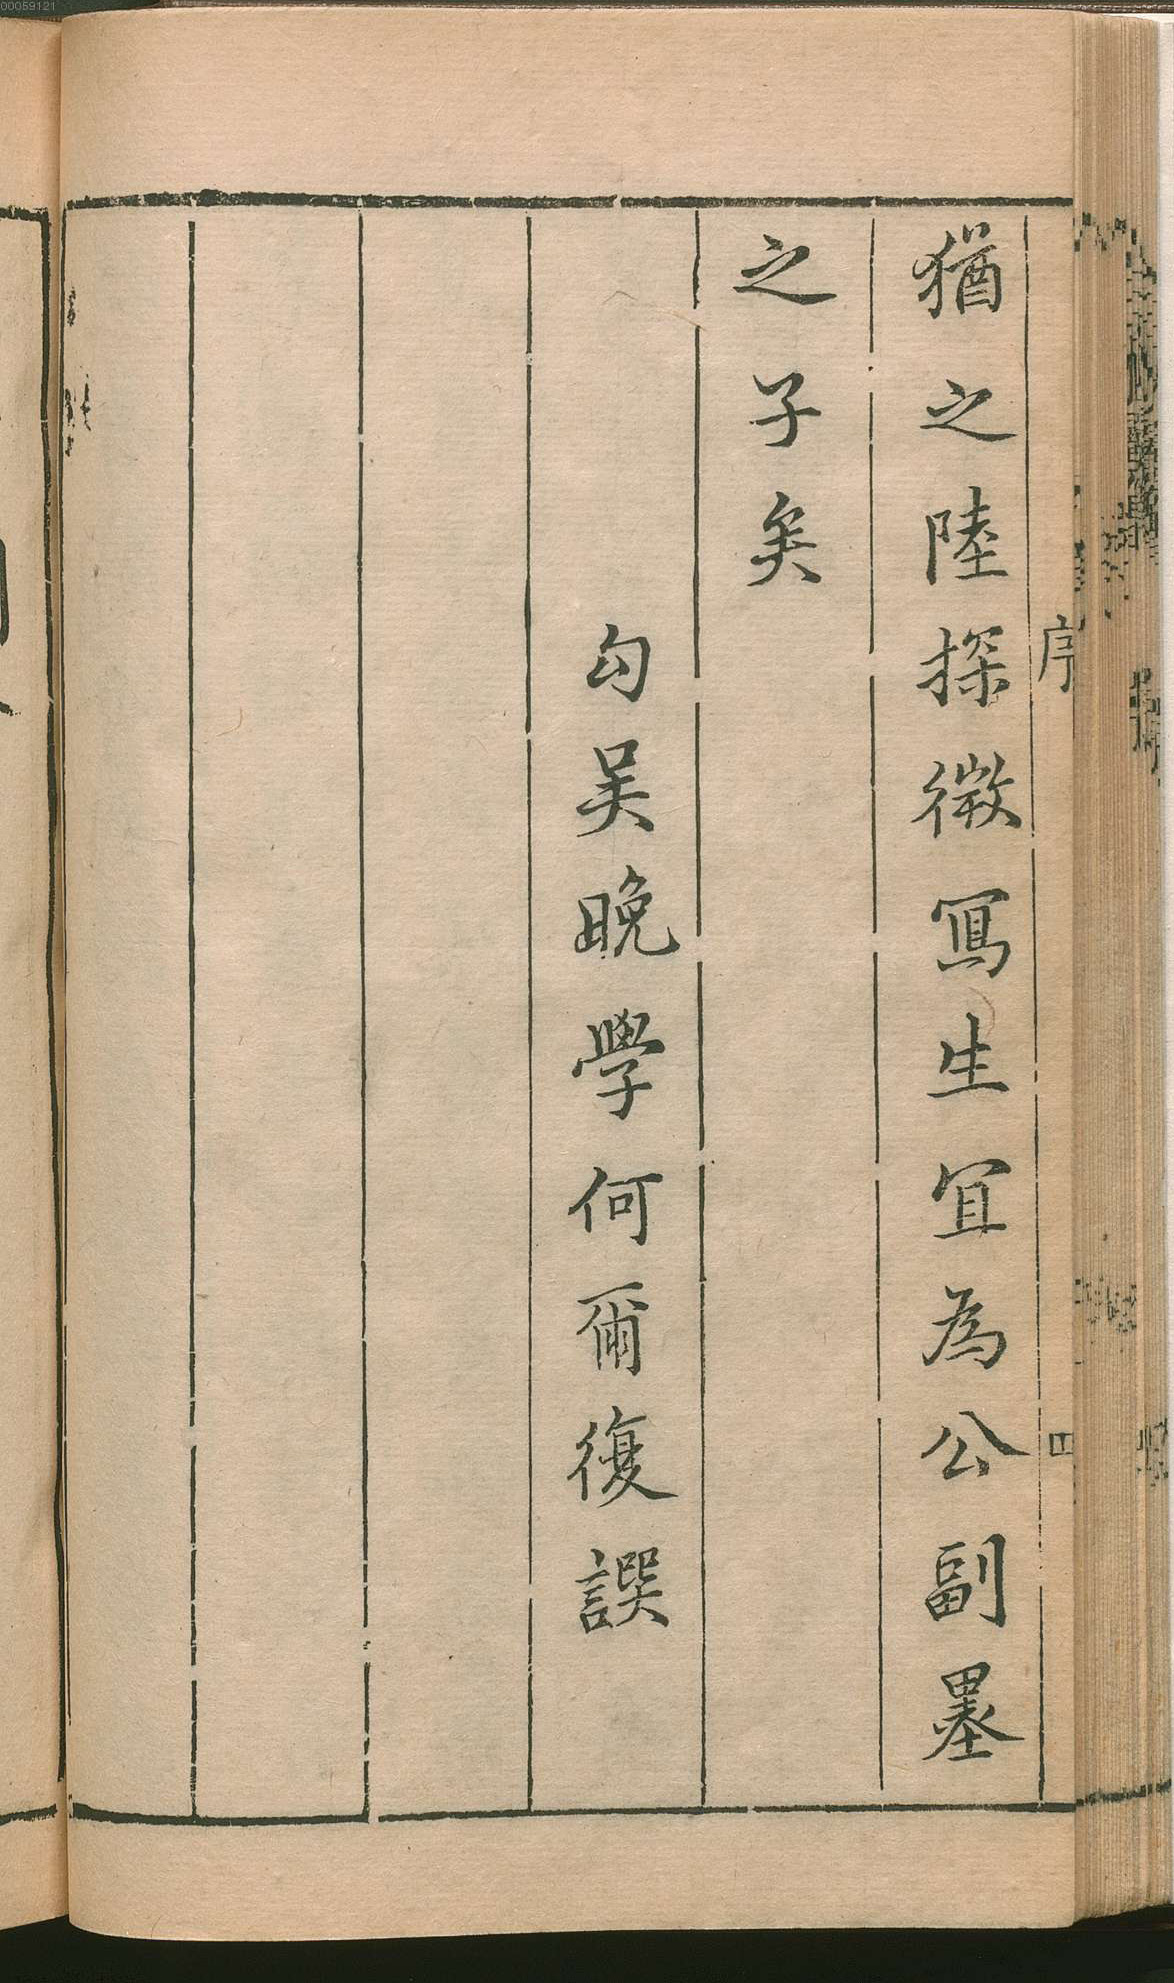 00059121
序
四
猶之陸探微寫生宜為公副墨
之子矣
勾吳晚學何爾復譔